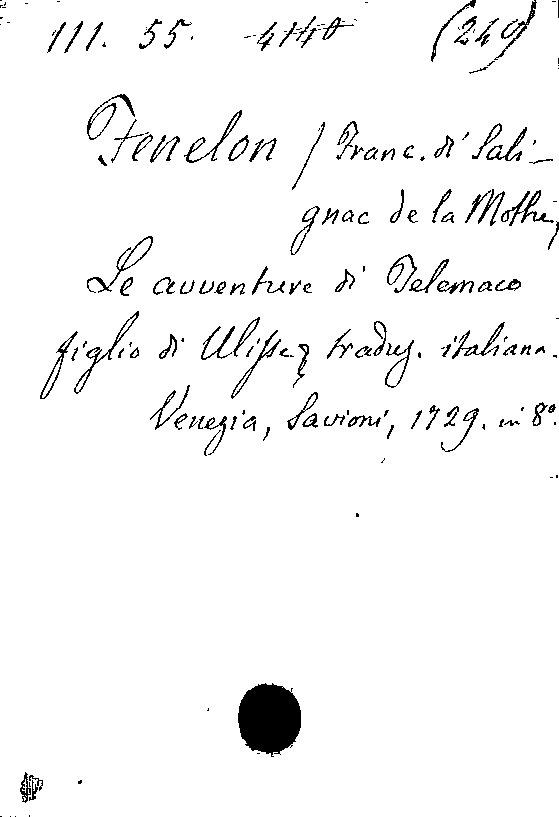 111. 55. 4140 (249)
Fenelon / Franc. di Sali-
gnac de la Mothe,
Le avventure di Telemaco
figlio di Ulisse, traduz. italiana.
Venezia, Savioni, 1729. in 8º.